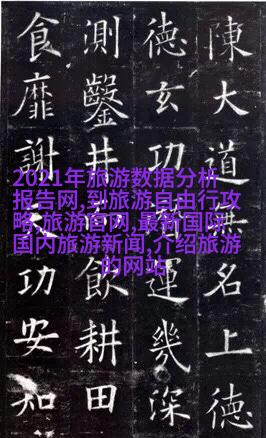 陳大道無名上德
德玄功運幾深
測鑿井飲耕田
食靡謝功安知
2021年旅游数据分析
报告网,到旅游自由行攻
略,旅游官网,最新国际
国内旅游新闻,介绍旅游
的网站